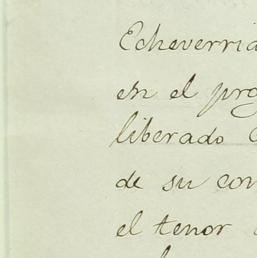 Echeverria
en el pro
liberado
de su con
el tenor